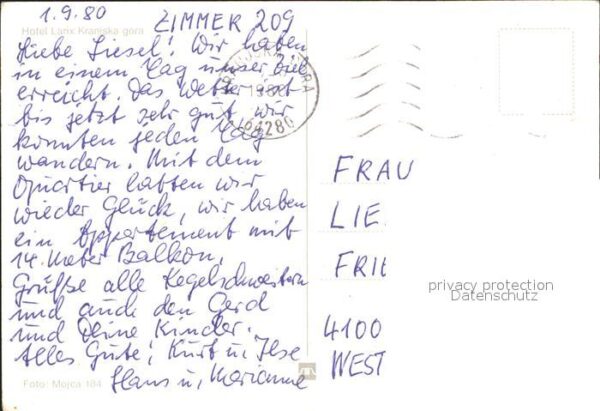 1.9.80 ZIMMER 209
Hotel Larix Kranjska gora
Liebe Liesel! Wir haben
in einem Tag unser Ziel
erreicht. das Wetter ist
bis jetzt sehr gut, wir
konnten jeden Tag
wandern. Mit dem
Quartier hatten wir
wieder Glück, wir haben
ein Appartement mit
14. Meter Balkon.
Grüße alle Kegelschwestern
und auch den Gerd
und Deine Kinder.
Alles Gute, Kurt u. Ilse
Hans u. Marianne
Foto: Mojca 104
64280
FRAU
LIE
FRIE
privacy protection
Datenschutz
4100
WEST